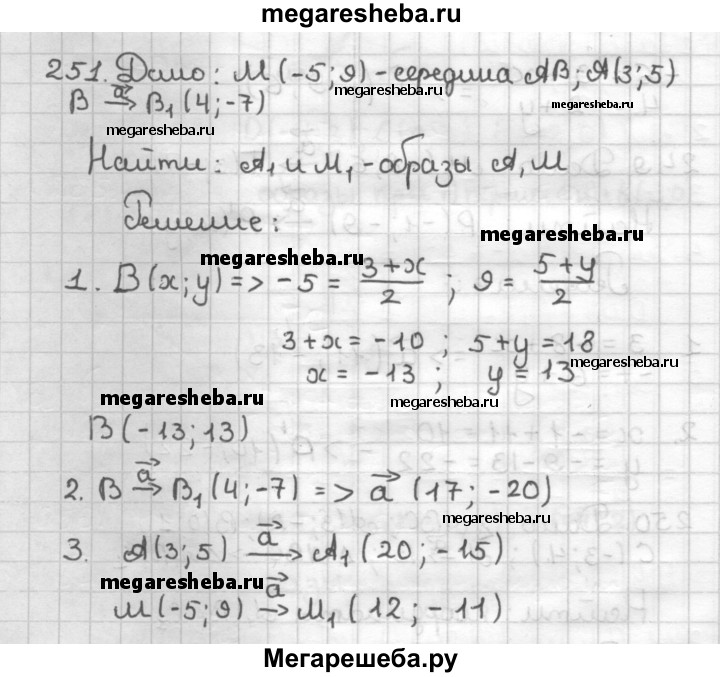 megaresheba.ru
251. Дано: M(-5;9) - середина AB; A(3;5)
megaresheba.ru
megaresheba.ru
B →a B₁(4;-7)
megaresheba.ru
Найти: A₁ и M₁ - образы A, M
Решение:
megaresheba.ru
megaresheba.ru
1. B(x;y) => -5 = (3+x)/2 ; 9 = (5+y)/2
3+x = -10 ; 5+y = 18
megaresheba.ru
x = -13 ; y = 13
megaresheba.ru
megaresheba.ru
B(-13;13)
2. B →a B₁(4;-7) => a⃗ (17;-20)
megaresheba.ru
3. A(3;5) →a A₁(20;-15)
megaresheba.ru
M(-5;9) →a M₁(12;-11)
Мегарешеба.ру